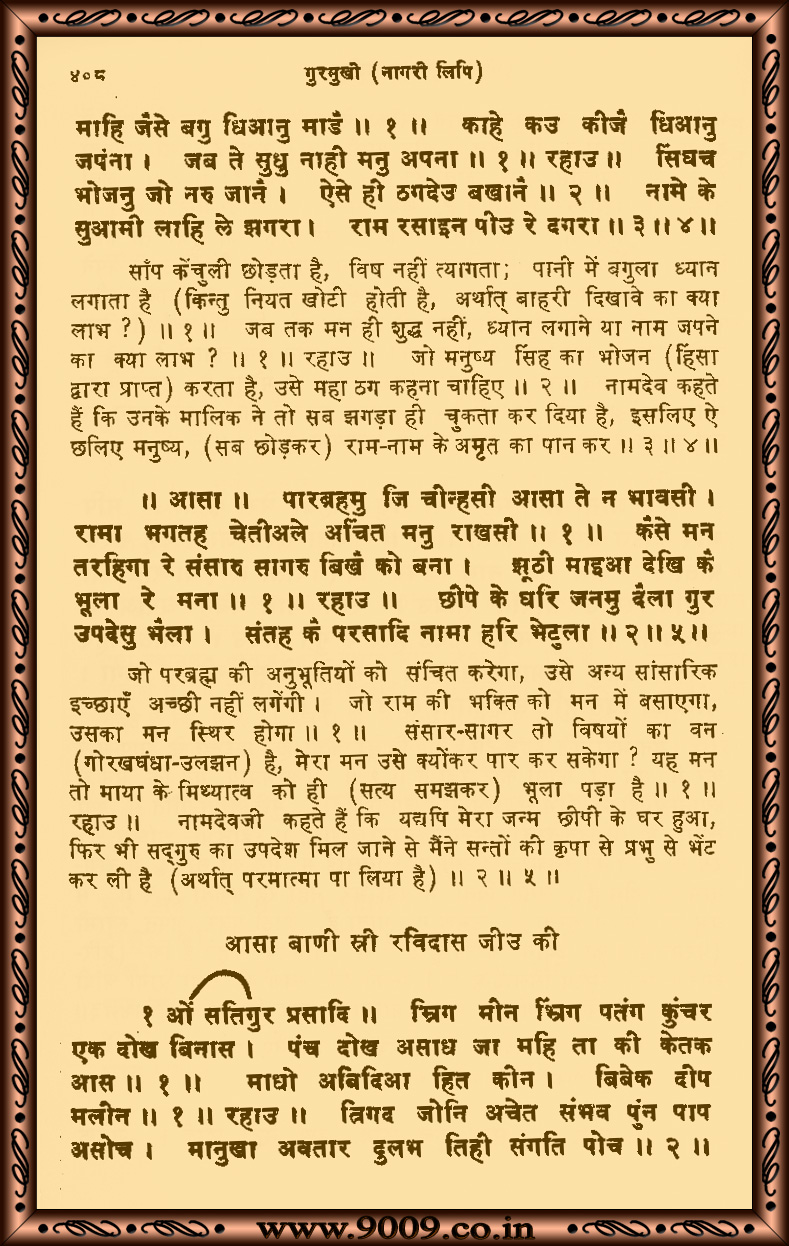 ४०८ गुरमुखी (नागरी लिपि)
माहि जैसे बगु धिआनु माडै ॥ १ ॥ काहे कउ कीजै धिआनु
जपंना । जब ते सुधु नाही मनु अपना ॥ १ ॥ रहाउ ॥ सिंघच
भोजनु जो नरु जानै । ऐसे ही ठगदेउ बखानै ॥ २ ॥ नामे के
सुआमी लाहि ले झगरा । राम रसाइन पीउ रे दगरा ॥ ३ ॥ ४ ॥
साँप केंचुली छोड़ता है, विष नहीं त्यागता; पानी में बगुला ध्यान
लगाता है (किन्तु नियत खोटी होती है, अर्थात् बाहरी दिखावे का क्या
लाभ ?) ॥ १ ॥ जब तक मन ही शुद्ध नहीं, ध्यान लगाने या नाम जपने
का क्या लाभ ? ॥ १ ॥ रहाउ ॥ जो मनुष्य सिंह का भोजन (हिंसा
द्वारा प्राप्त) करता है, उसे महा ठग कहना चाहिए ॥ २ ॥ नामदेव कहते
हैं कि उनके मालिक ने तो सब झगड़ा ही चुकता कर दिया है, इसलिए ऐ
छलिए मनुष्य, (सब छोड़कर) राम-नाम के अमृत का पान कर ॥ ३ ॥ ४ ॥
॥ आसा ॥ पारब्रहमु जि चीन्हसी आसा ते न भावसी ।
रामा भगतह चेतीअले अचिंत मनु राखसी ॥ १ ॥ कैसे मन
तरहिगा रे संसारु सागरु बिखै को बना । झूठी माइआ देखि कै
भूला रे मना ॥ १ ॥ रहाउ ॥ छीपे के घरि जनमु दैला गुर
उपदेसु भैला । संतह कै परसादि नामा हरि भेटुला ॥ २ ॥ ५ ॥
जो परब्रह्म की अनुभूतियों को संचित करेगा, उसे अन्य सांसारिक
इच्छाएँ अच्छी नहीं लगेंगी । जो राम की भक्ति को मन में बसाएगा,
उसका मन स्थिर होगा ॥ १ ॥ संसार-सागर तो विषयों का वन
(गोरखधंधा-उलझन) है, मेरा मन उसे क्योंकर पार कर सकेगा ? यह मन
तो माया के मिथ्यात्व को ही (सत्य समझकर) भूला पड़ा है ॥ १ ॥
रहाउ ॥ नामदेवजी कहते हैं कि यद्यपि मेरा जन्म छीपी के घर हुआ,
फिर भी सद्‌गुरु का उपदेश मिल जाने से मैंने सन्तों की कृपा से प्रभु से भेंट
कर ली है (अर्थात् परमात्मा पा लिया है) ॥ २ ॥ ५ ॥
आसा बाणी स्री रविदास जीउ की
१ ओं सतिगुर प्रसादि ॥ म्रिग मीन भ्रिंग पतंग कुंचर
एक दोख बिनास । पंच दोख असाध जा महि ता की केतक
आस ॥ १ ॥ माधो अबिदिआ हित कीन । बिबेक दीप
मलीन ॥ १ ॥ रहाउ ॥ त्रिगद जोनि अचेत संभव पुंन पाप
असोच । मानुखा अवतार दुलभ तिही संगति पोच ॥ २ ॥
www.9009.co.in